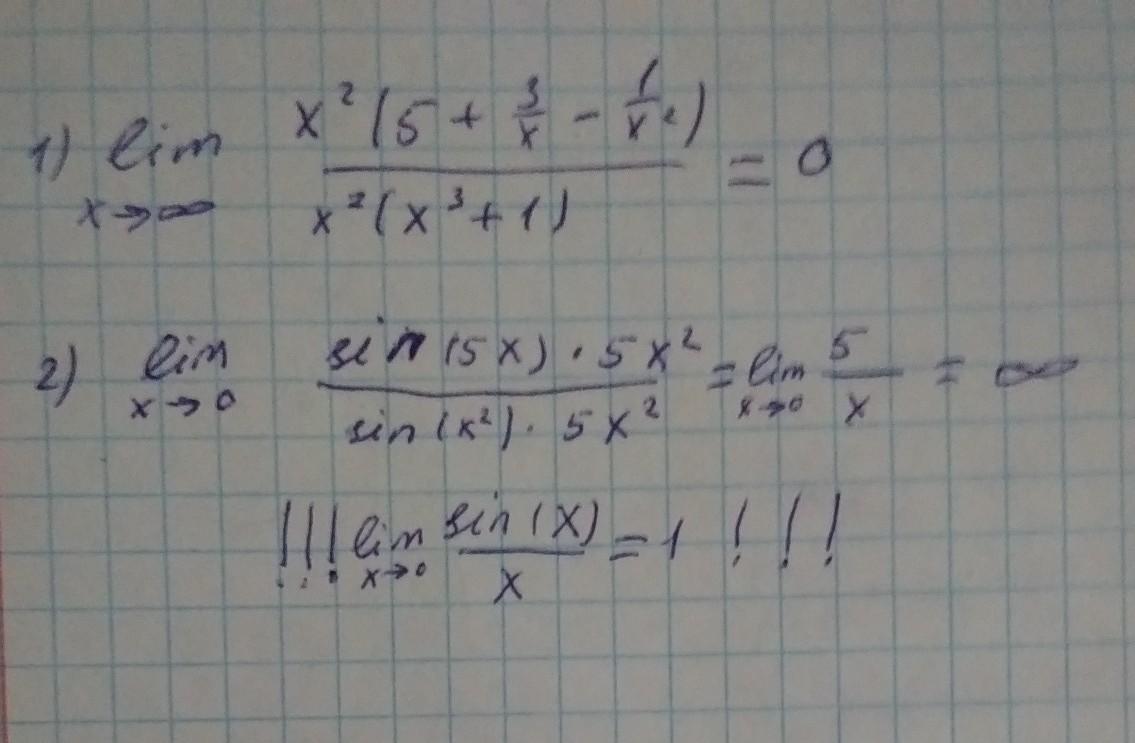 1) lim x→∞ x²(5 + 3/x - 1/x²) / x²(x³+1) = 0
2) lim x→0 sin(5x)·5x² / sin(x²)·5x² = lim x→0 5/x = ∞
!!! lim x→0 sin(x)/x = 1 !!!